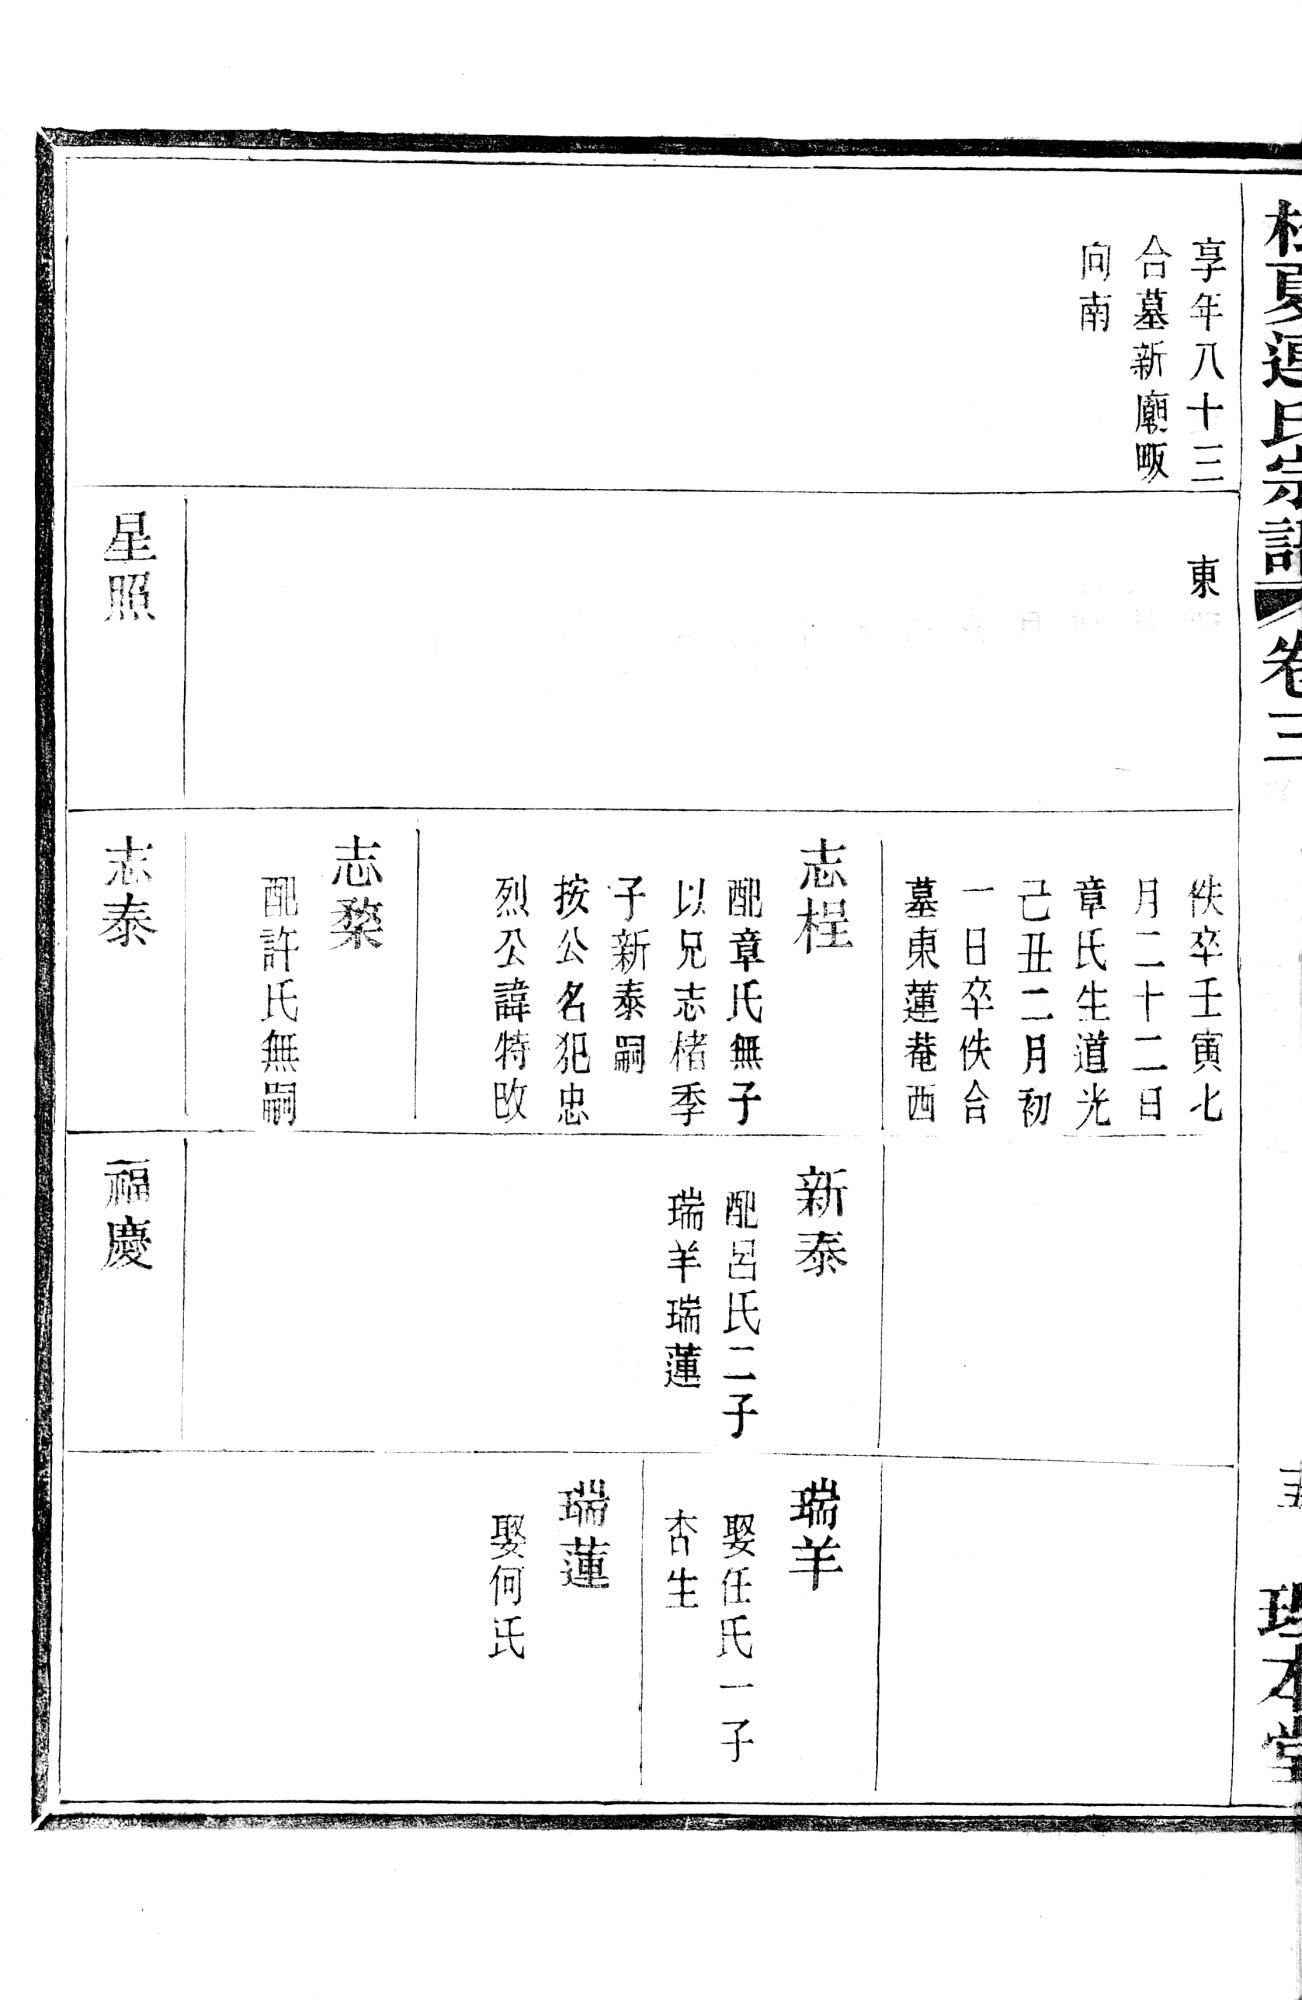 桂夏連氏宗譜 卷三
理本堂
享年八十三
合墓新廟畈
向南
東
星照
佚卒壬寅七
月二十二日
章氏生道光
己丑二月初
一日卒佚合
墓東蓮菴西
志桯
配章氏無子
以兄志楮季
子新泰嗣
按公名犯忠
烈公諱特改
志楘
配許氏無嗣
志泰
新泰
配呂氏二子
瑞羊瑞蓮
福慶
瑞羊
娶任氏一子
杏生
瑞蓮
娶何氏